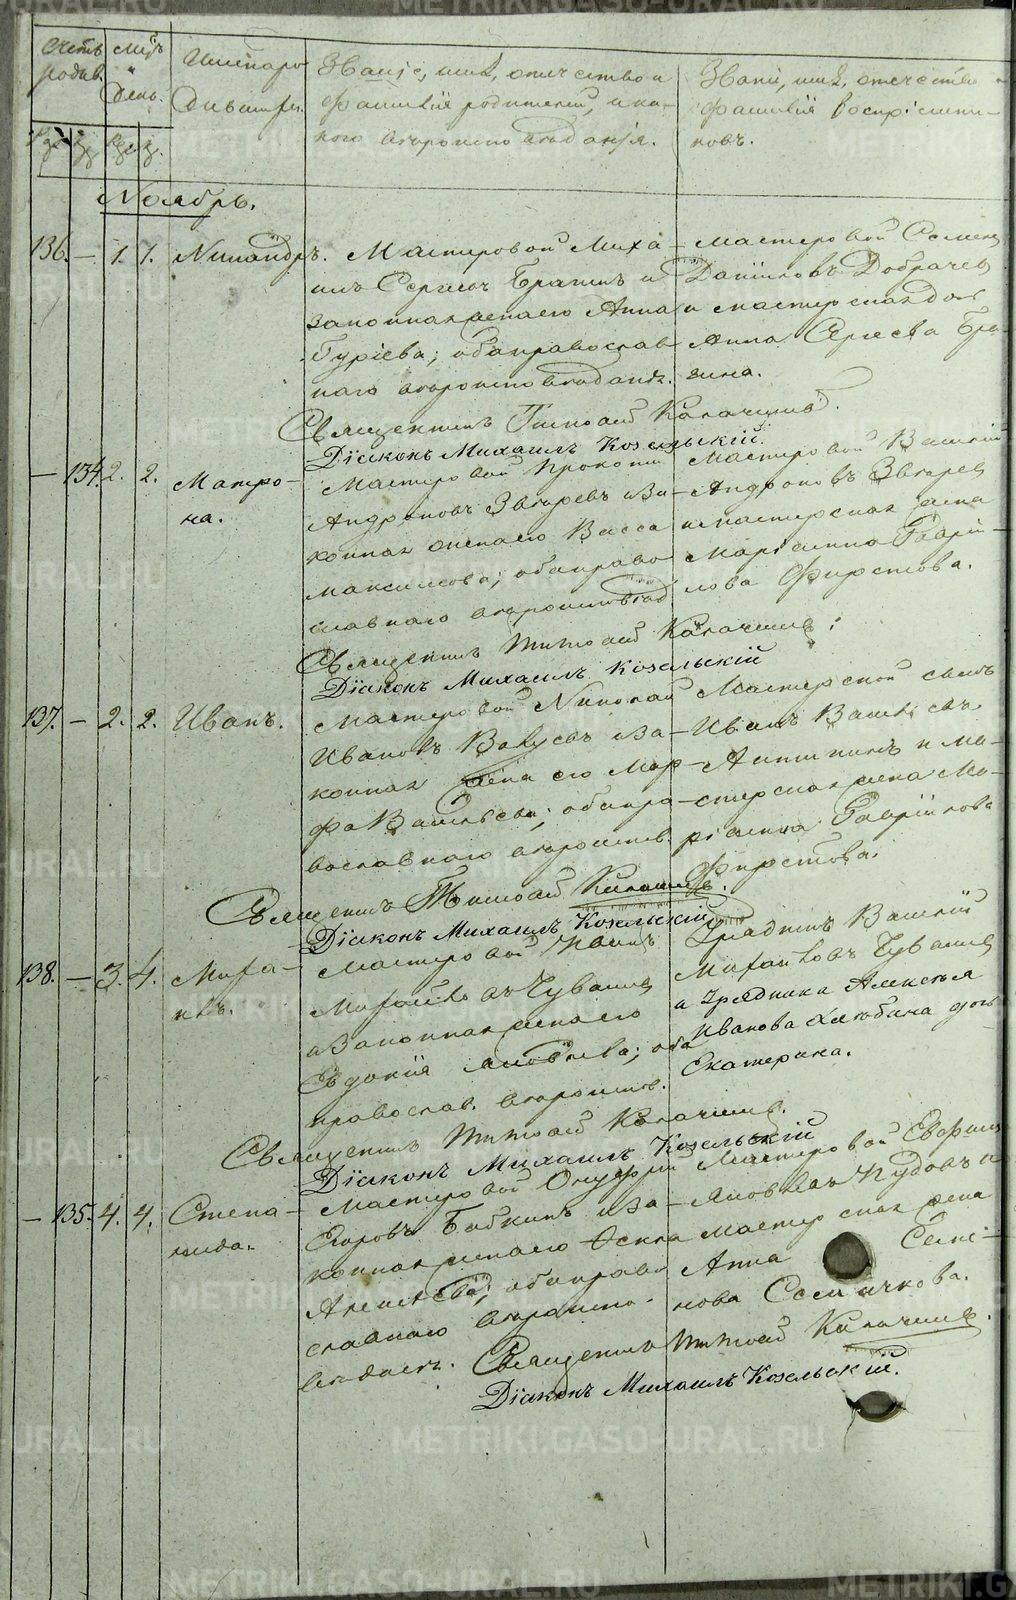 Счетъ родив.
Мцъ и день.
Имена родившихся.
Званіе, имя, отчество и фамилія родителей, и какого вѣроисповѣданія.
Званіе, имя, отчество и фамилія воспріемниковъ.
Ноябрь.
136. — 1. 1. Никандръ.
Мастеровой Миха-
илъ Сергѣевъ и
законная жена его Анна
Гуріева; оба православ-
наго вѣроисповѣданія.
Мастеровой Семенъ
Даниловъ Добрачев
и мастерская дочь
Анна Сергѣева
зина.
Священникъ Тимофей Калачинъ.
Діаконъ Михаилъ Козельскій.
— 134. 2. 2. Матро-
на.
Мастеровой Прокопій
Андроновъ Звѣревъ и за-
конная жена его Васса
Максимова; оба право-
славнаго вѣроисповѣд.
Мастеровой Василій
Андроновъ Звѣрев
и мастерская жена
Маріамна Гаврі-
лова Фирстова.
Священникъ Тимофей Калачинъ.
Діаконъ Михаилъ Козельскій
137. — 2. 2. Иванъ.
Мастеровой Николай
Ивановъ и за-
конная жена его Мар-
фа Васильева; оба пра-
вославнаго вѣроиспов.
Мастерской сынъ
Иванъ Васильевъ
Антипинъ и ма-
стерская жена Ма-
ріамна Гаврілова
Фирстова.
Священникъ Тимофей Калачинъ.
Діаконъ Михаилъ Козельскій
138. — 3. 4. Миха-
илъ.
Мастеровой Иванъ
Михайловъ Чувашев
и законная жена его
Евдокія Яковлева; оба
православ. вѣроиспов.
Урядникъ Василій
Михайловъ Чувашев
и Урядника Алексѣя
Иванова Хлюбина дочь
Екатерина.
Священникъ Тимофей Калачинъ.
Діаконъ Михаилъ Козельскій
— 135. 4. 4. Степа-
нида.
Мастеровой Онуфрій
Егоровъ Бабкинъ и за-
конная жена его Фекла
Алексѣева; оба право-
славнаго вѣроиспо-
вѣданія.
Мастеровой Евфимъ
Яковлевъ Пудовъ и
мастерская жена
Анна Семе-
нова Семячкова.
Священникъ Тимофей Калачинъ.
Діаконъ Михаилъ Козельскій.
METRIKI.GASO-URAL.RU